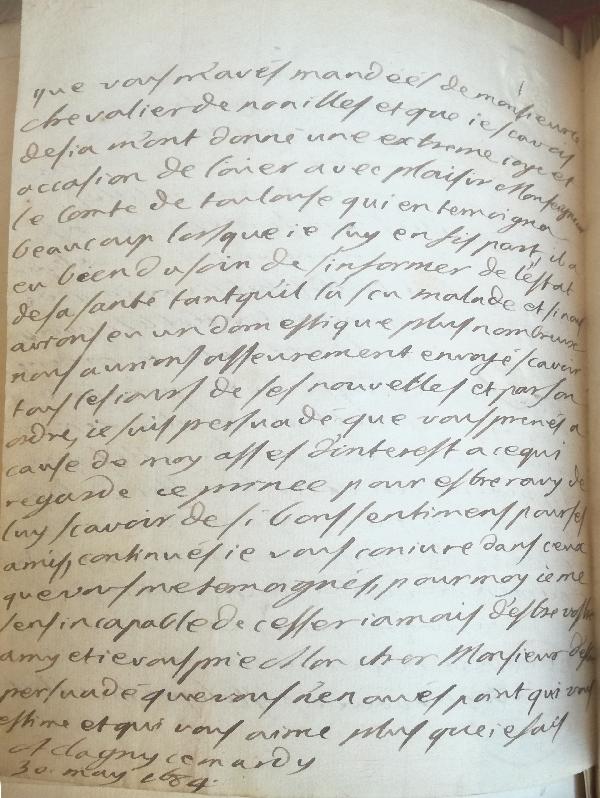 que vous m'avés mandeés de monsieur le
chevalier de noailles et que ie scavois
desia m'ont donné une extreme ioye et
occasion de louer avec plaisir Monseigneur
le Comte de toulouse qui en temoigna
beaucoup lorsque ie luy en fis part, il a
eu bien du soin de s'informer de l'estat
de sa santé tant qu'il l'a scu malade et si nous
avions eu un domestique plus nombreux
nous aurions asseurement envoyé scavoir
tous les iours de ses nouvelles et par son
ordre, ie suis persuadé que vous prenés a
cause de moy assés d'interest a ce qui
regarde ce prince pour estre ravy de
luy scavoir de si bons sentimens pour ses
amis, continués ie vous coniure dans ceux
que vous me temoignés, pour moy ie me
sens incapable de cesser iamais d'estre vostre
amy et ie vous prie Mon cher Monsieur d'estre
persuadé que vous n'en avés point qui vous
estime et qui vous aime plus que ie fais
A Clagny ce mardy
30. may 1684.